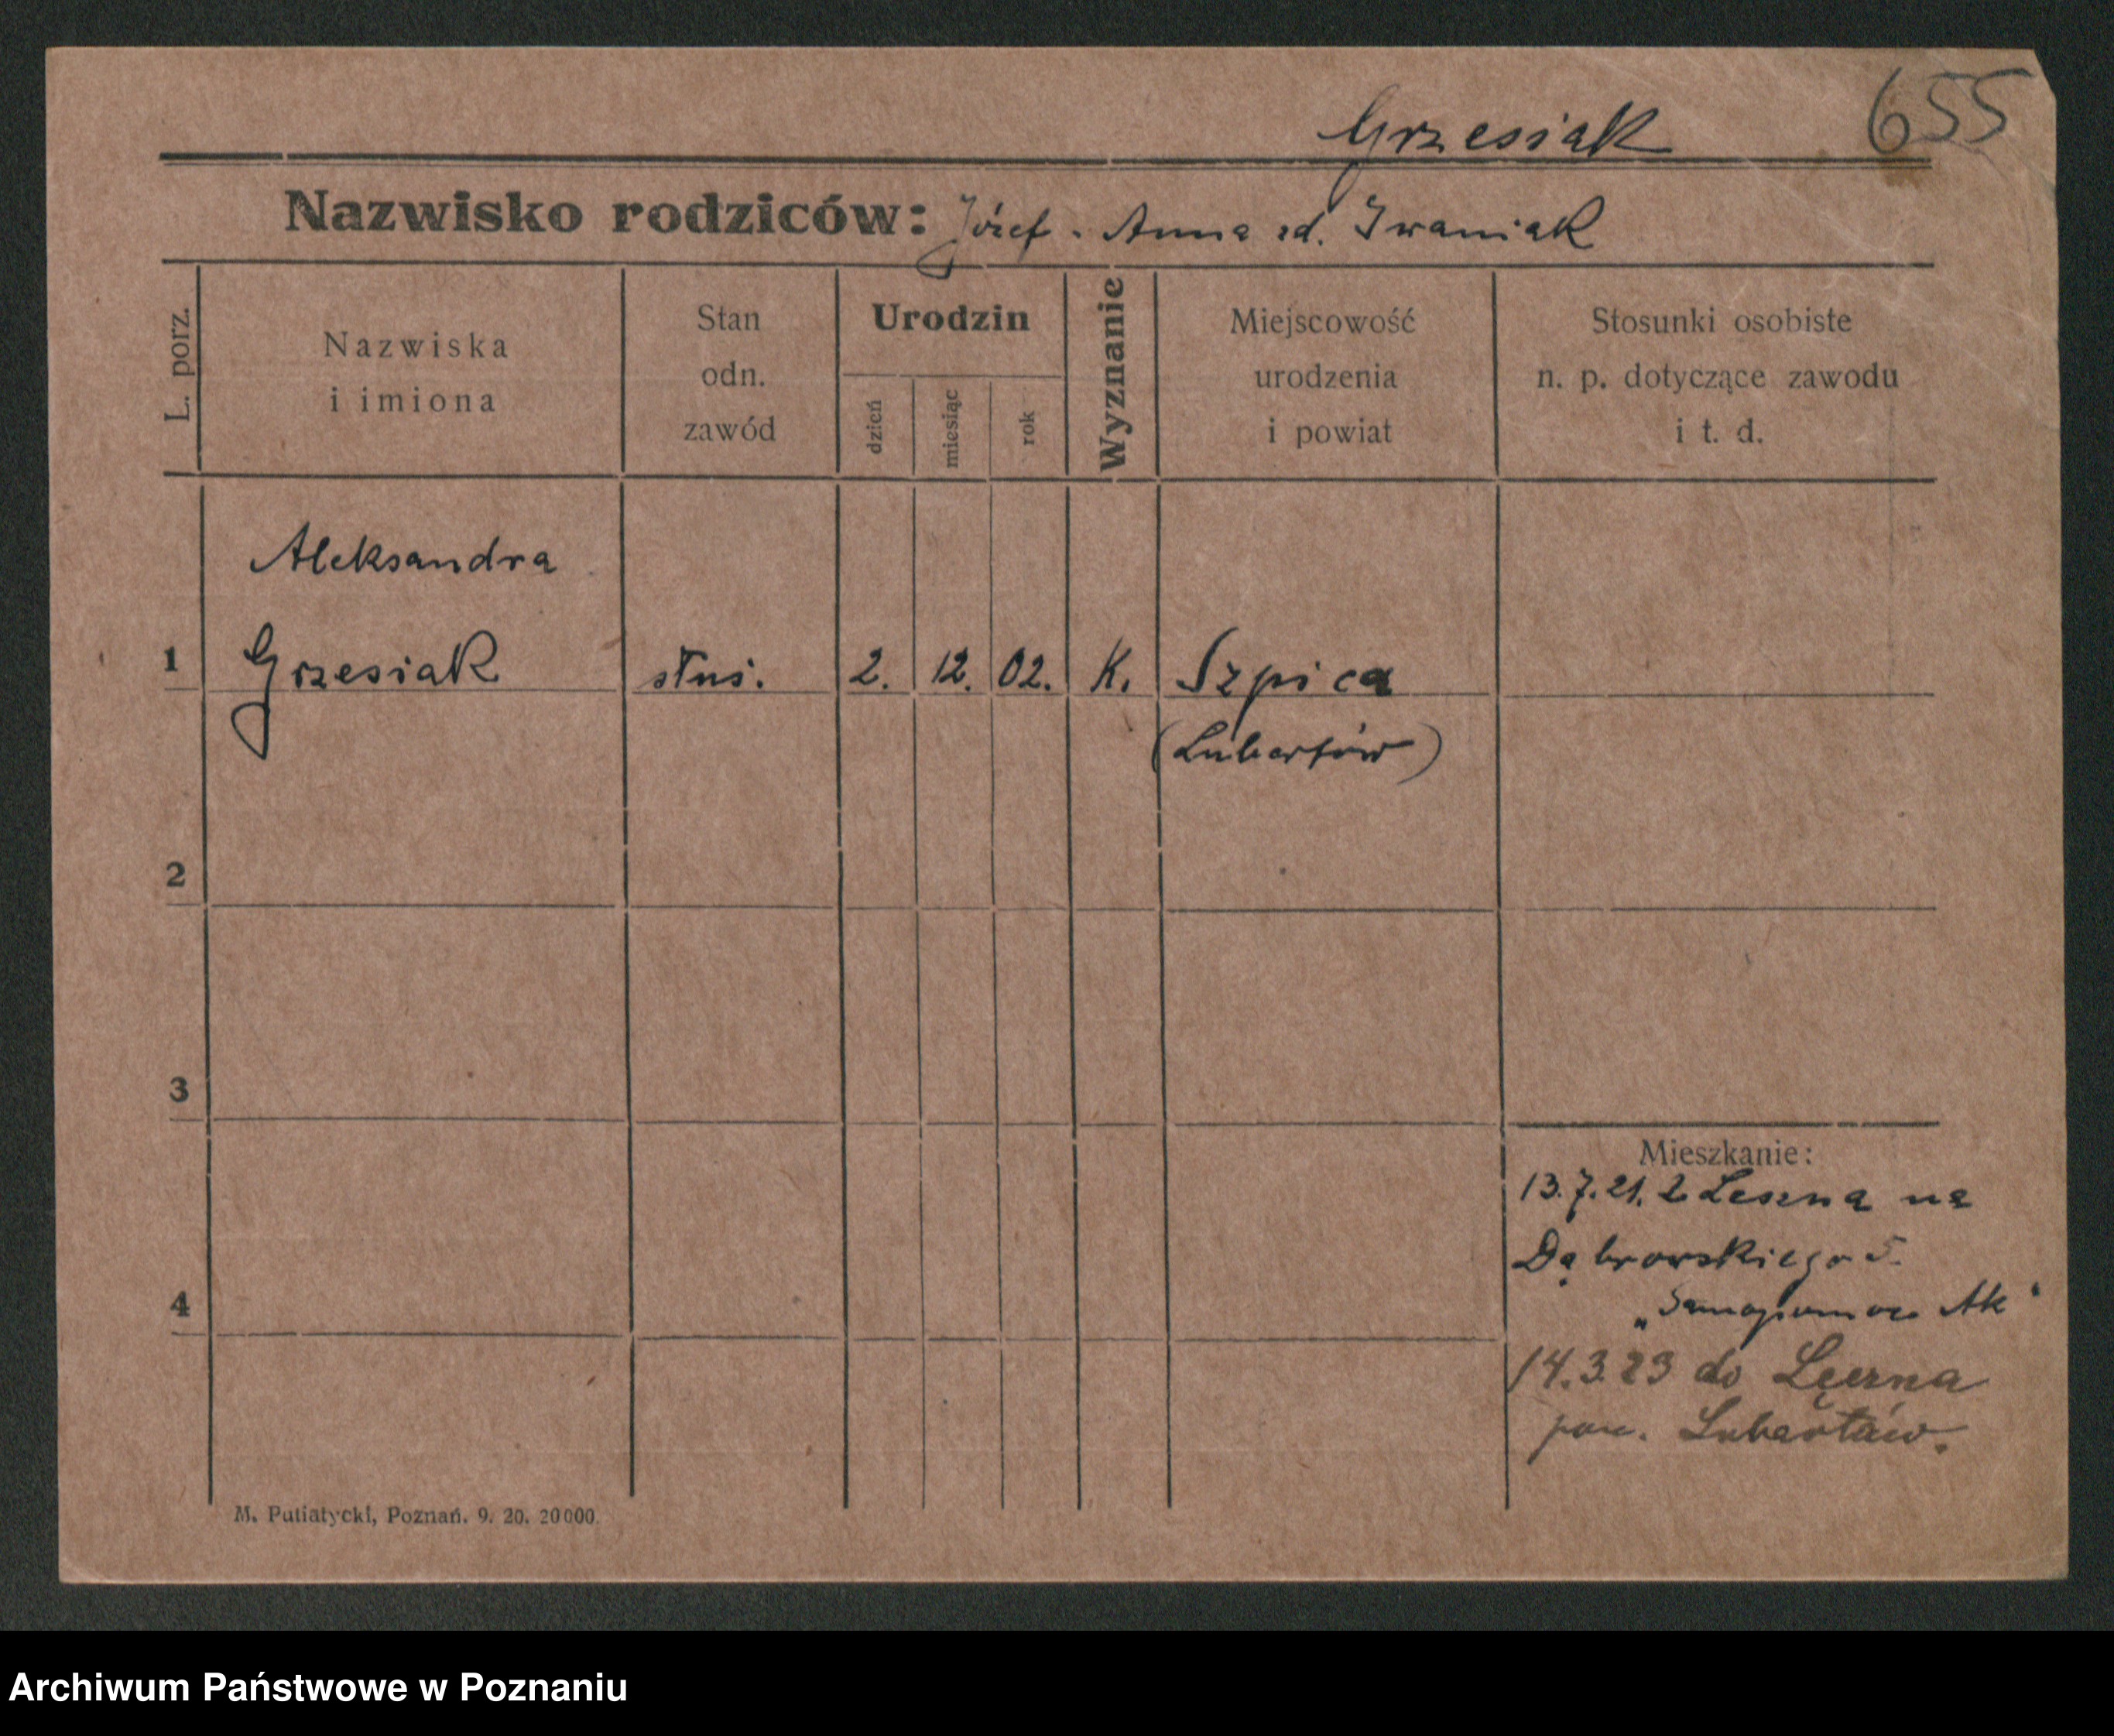 655
Grzesiak
Nazwisko rodziców: Józef - Anna zd. Iwaniak
L. porz.
Nazwiska
i imiona
Stan
odn.
zawód
Urodzin
dzień
miesiąc
rok
Wyznanie
Miejscowość
urodzenia
i powiat
Stosunki osobiste
n. p. dotyczące zawodu
i t. d.
Aleksandra
1 Grzesiak służ. 2. 12. 02. K. Szpica
(Lubartów)
2
3
4
Mieszkanie:
13.7.21. z Leszna na
Dąbrowskiego 5.
„Samopomoc Ak"
14.3.23 do Łęczna
pow. Lubartów.
M. Putiatycki, Poznań. 9. 20. 20000.
Archiwum Państwowe w Poznaniu